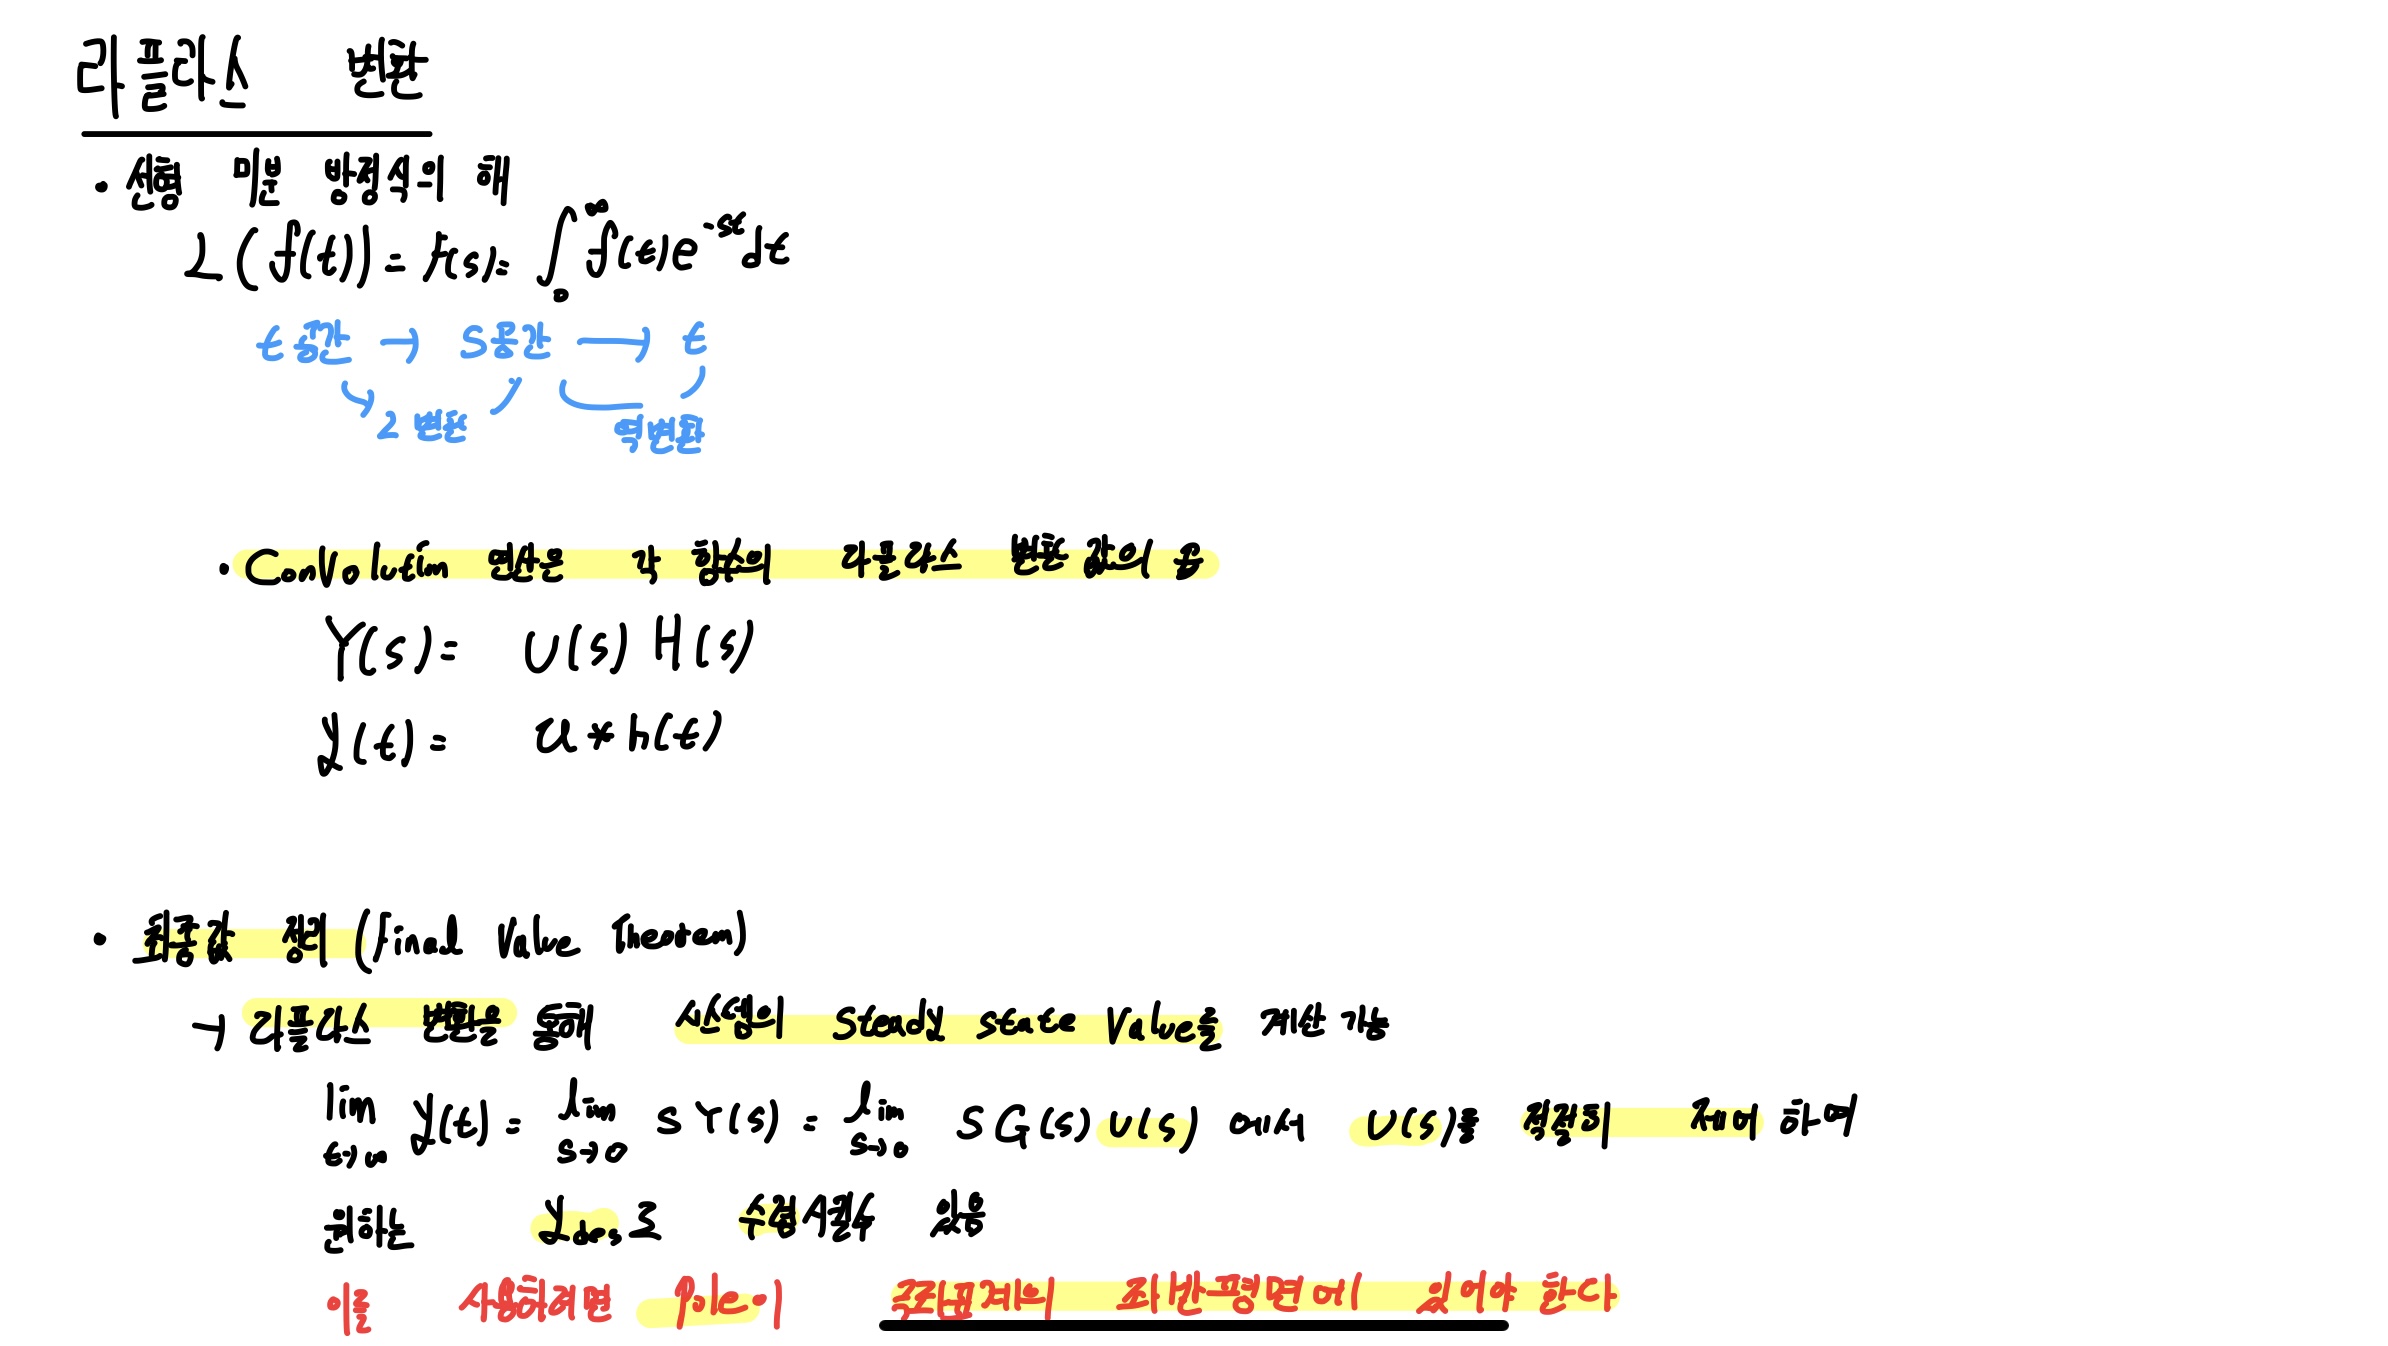 라플라스 변환
• 선형 미분 방정식의 해
L(f(t)) = F(s) = ∫₀^∞ f(t)e^{-st}dt
t 공간 → S공간 → t
L 변환 역변환
• Convolution 연산은 각 함수의 라플라스 변환 값의 곱
Y(s) = U(s) H(s)
y(t) = u * h(t)
• 최종값 정리 (Final Value Theorem)
→ 라플라스 변환을 통해 시스템의 Steady state Value를 계산 가능
lim_{t→∞} y(t) = lim_{s→0} sY(s) = lim_{s→0} SG(s)U(s) 에서 U(s)를 적절히 제어 하여
원하는 y_des로 수렴시킬수 있음
이를 사용하려면 Pole이 극좌표계의 좌반평면에 있어야 한다